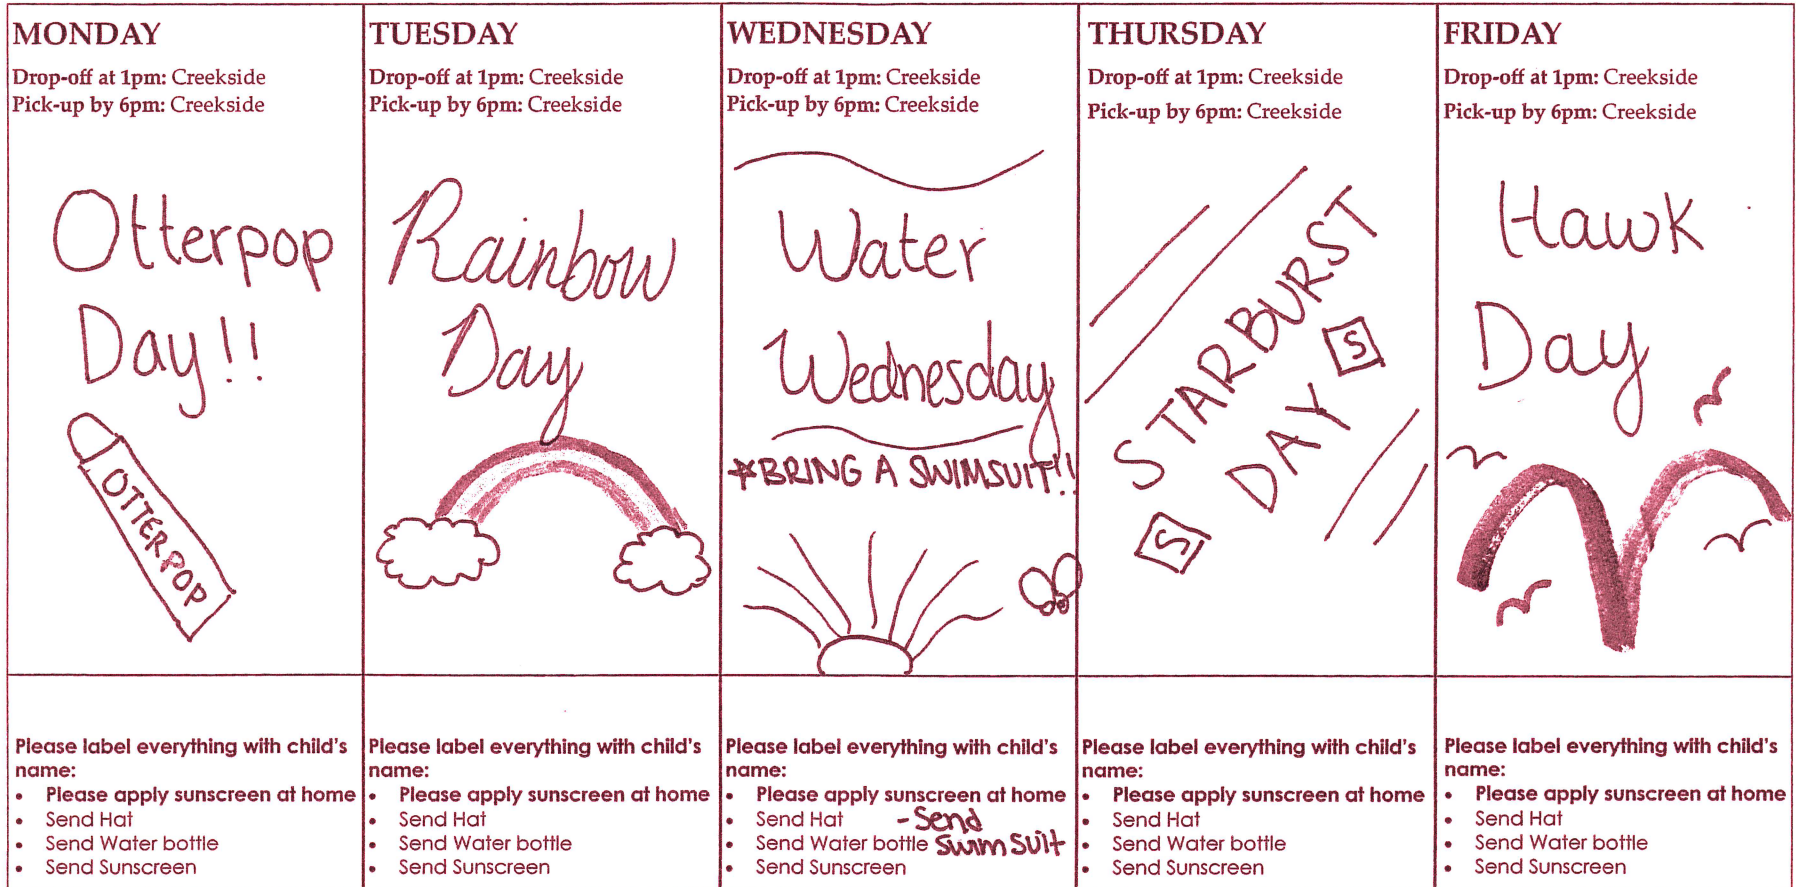 MONDAY
Drop-off at 1pm: Creekside
Pick-up by 6pm: Creekside
Otterpop
Day!!
OTTERPOP
Please label everything with child's
name:
• Please apply sunscreen at home
• Send Hat
• Send Water bottle
• Send Sunscreen
TUESDAY
Drop-off at 1pm: Creekside
Pick-up by 6pm: Creekside
Rainbow
Day
Please label everything with child's
name:
• Please apply sunscreen at home
• Send Hat
• Send Water bottle
• Send Sunscreen
WEDNESDAY
Drop-off at 1pm: Creekside
Pick-up by 6pm: Creekside
Water
Wednesday
*BRING A SWIMSUIT!!
Please label everything with child's
name:
• Please apply sunscreen at home
• Send Hat - Send
• Send Water bottle Swim Suit
• Send Sunscreen
THURSDAY
Drop-off at 1pm: Creekside
Pick-up by 6pm: Creekside
STARBURST
DAY
S
S
Please label everything with child's
name:
• Please apply sunscreen at home
• Send Hat
• Send Water bottle
• Send Sunscreen
FRIDAY
Drop-off at 1pm: Creekside
Pick-up by 6pm: Creekside
Hawk
Day
Please label everything with child's
name:
• Please apply sunscreen at home
• Send Hat
• Send Water bottle
• Send Sunscreen